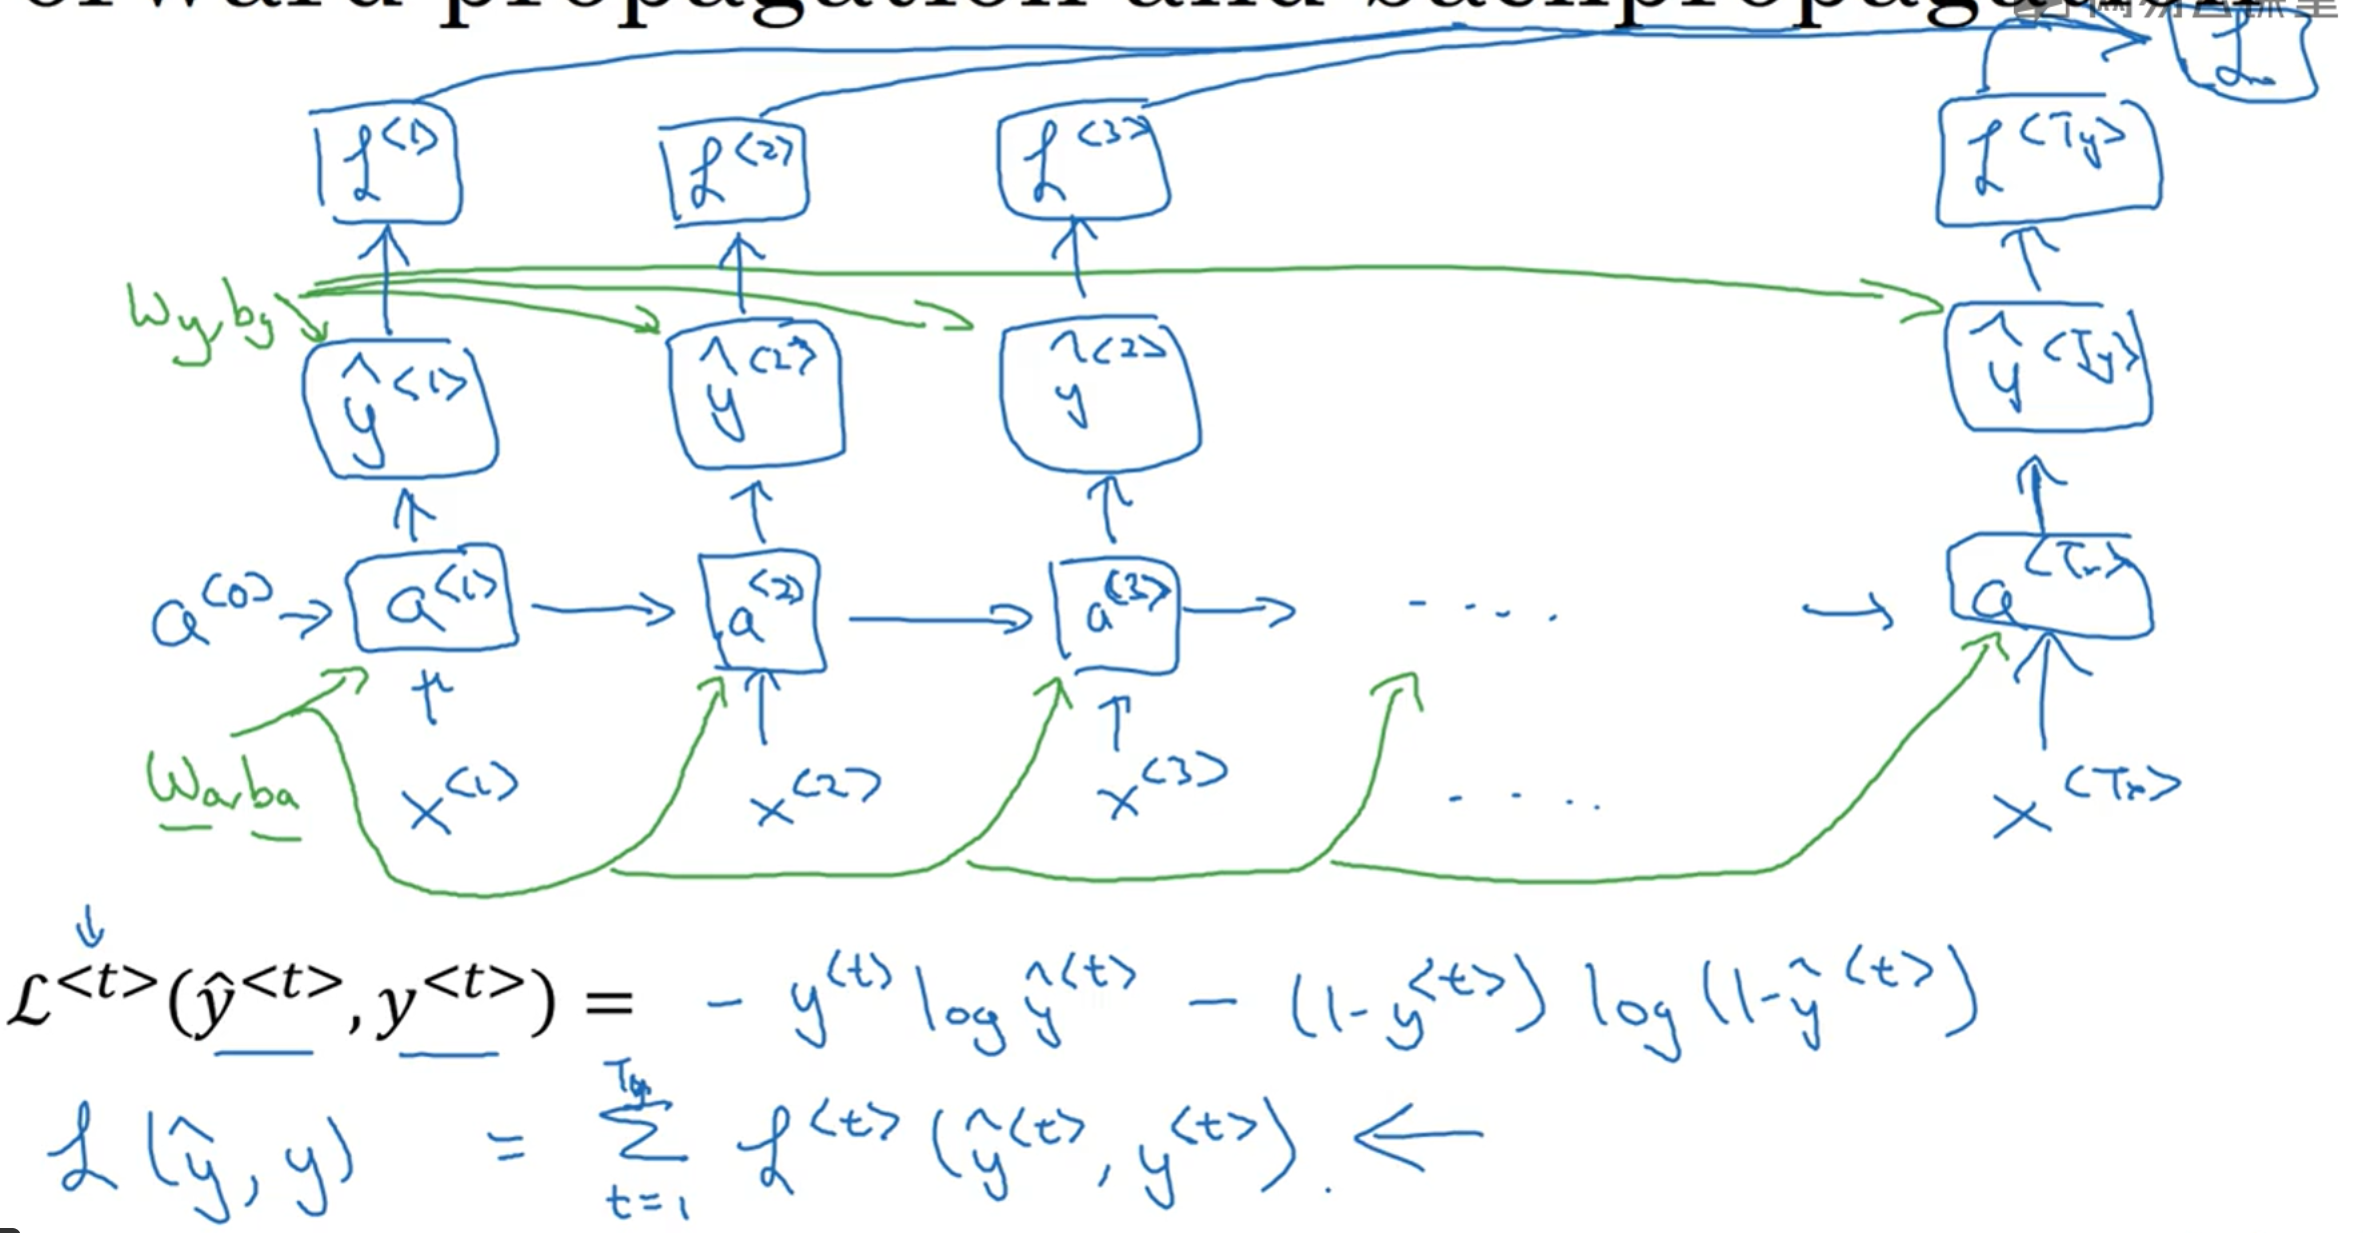 orward propagation and backpropagation
ℒ
ℒ^<1> ℒ^<2> ℒ^<3> ℒ^<Ty>
Wy, by
ŷ^<1> ŷ^<2> ŷ^<2> ŷ^<Ty>
a^<0> → a^<1> → a^<2> → a^<3> → - - - . → a^<Tx>
Wa, ba
x^<1> x^<2> x^<3> - - . . x^<Tx>
ℒ^<t>(ŷ^<t>, y^<t>) = - y^<t> log ŷ^<t> - (1-y^<t>) log (1-ŷ^<t>)
ℒ(ŷ, y) = Σ_{t=1}^{Ty} ℒ^<t>(ŷ^<t>, y^<t>). ←